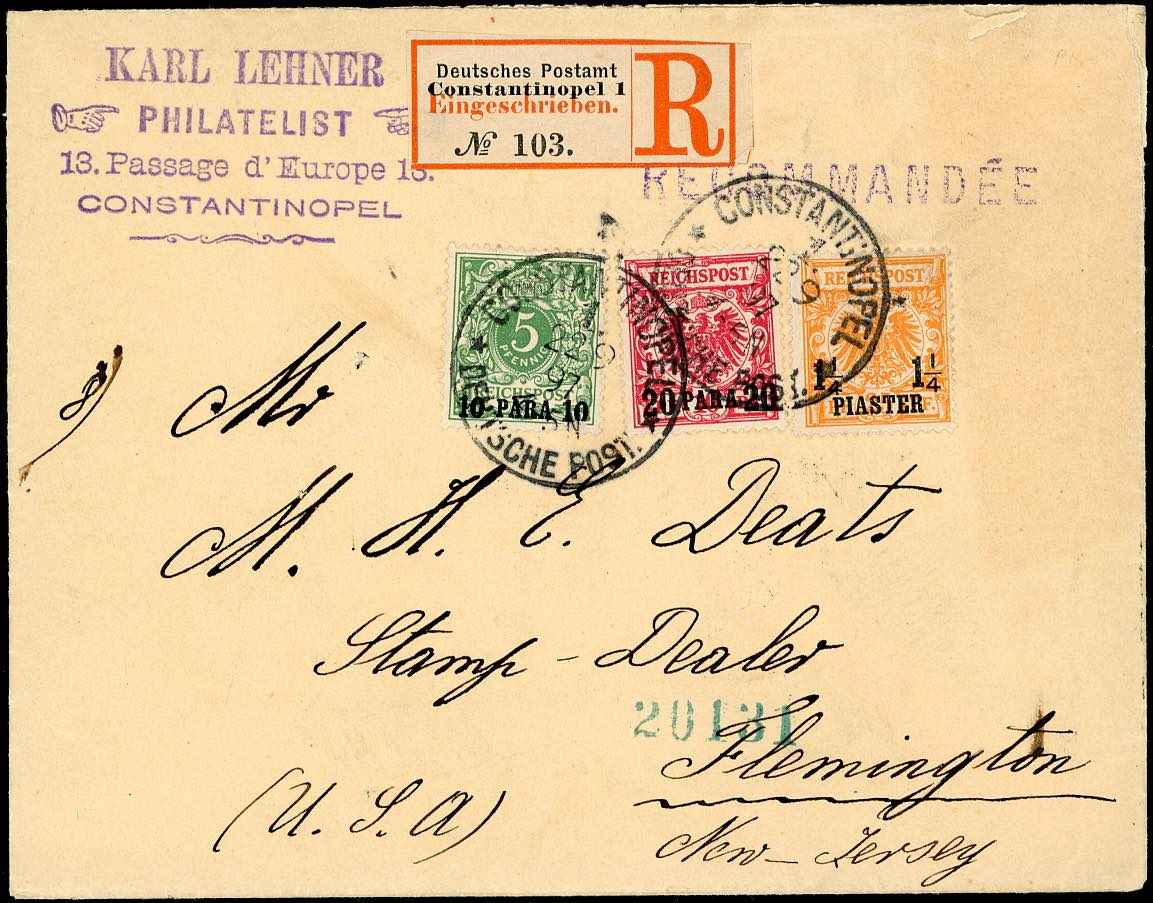 KARL LEHNER
PHILATELIST
13. Passage d'Europe 13.
CONSTANTINOPEL
Deutsches Postamt
Constantinopel 1
Eingeschrieben.
№ 103.
R
RECOMMANDÉE
5
PFENNIG
REICHSPOST
10 PARA 10
REICHSPOST
20 PARA 20
REICHSPOST
1 1/4 1 1/4
PIASTER
CONSTANTINOPEL
22 9
97
DEUTSCHE POST.
CONSTANTINOPEL
Mr
M. H. E. Deats
Stamp - Dealer
20131
Flemington
(U. S. A)
New-Jersey